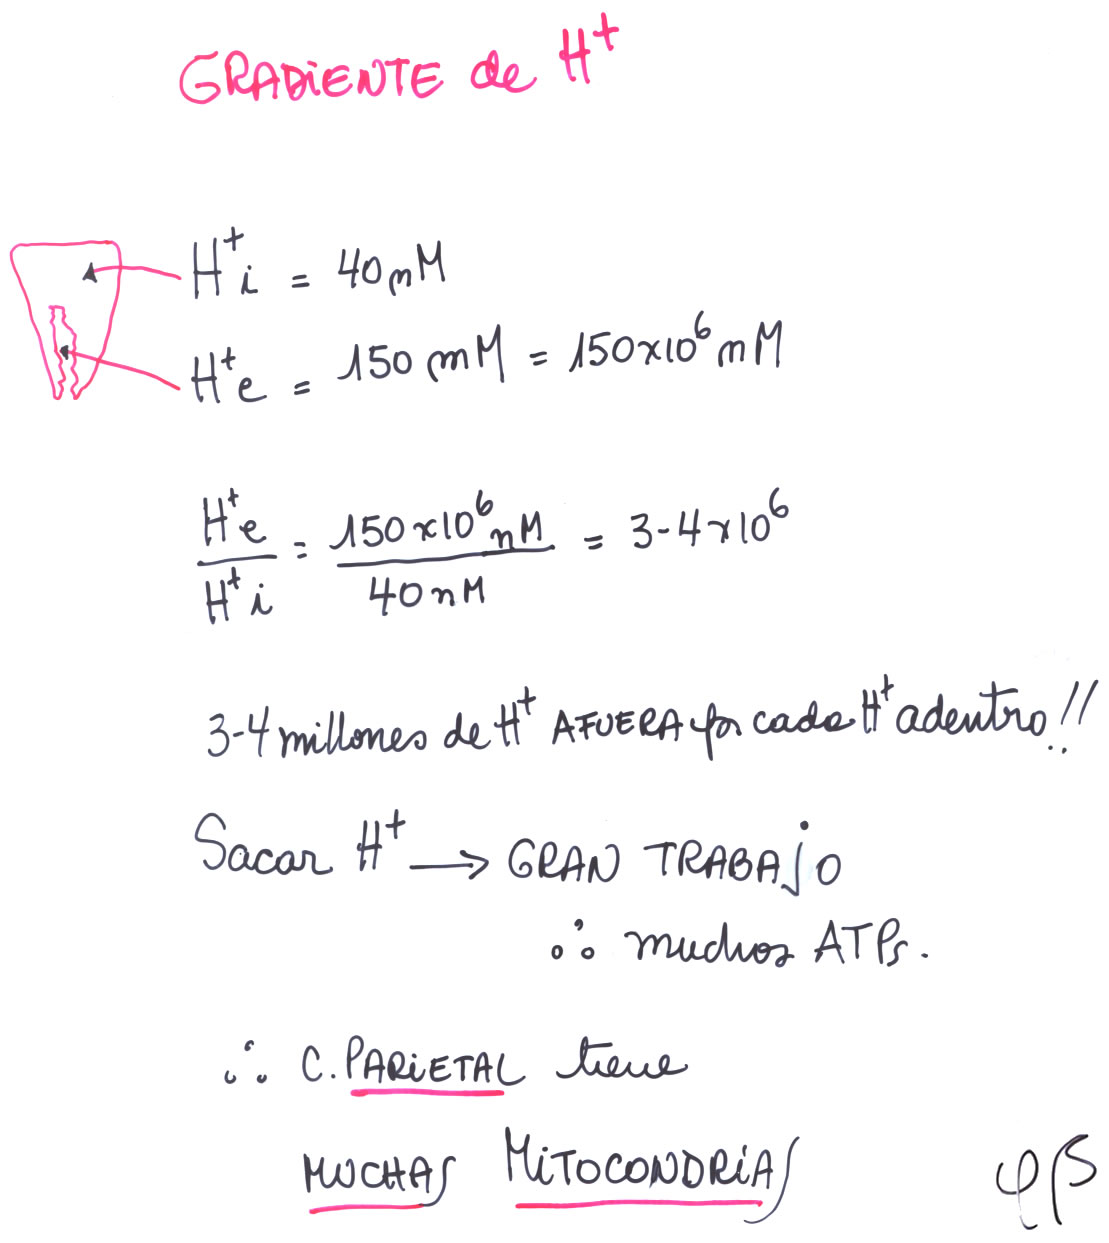 GRADIENTE de H⁺
H⁺i = 40 nM
H⁺e = 150 mM = 150x10⁶ nM
H⁺e / H⁺i = 150x10⁶ nM / 40 nM = 3-4x10⁶
3-4 millones de H⁺ AFUERA por cada H⁺ adentro!!
Sacar H⁺ → GRAN TRABAJO
∴ muchos ATPs.
∴ C. PARIETAL tiene
MUCHAS MITOCONDRIAS